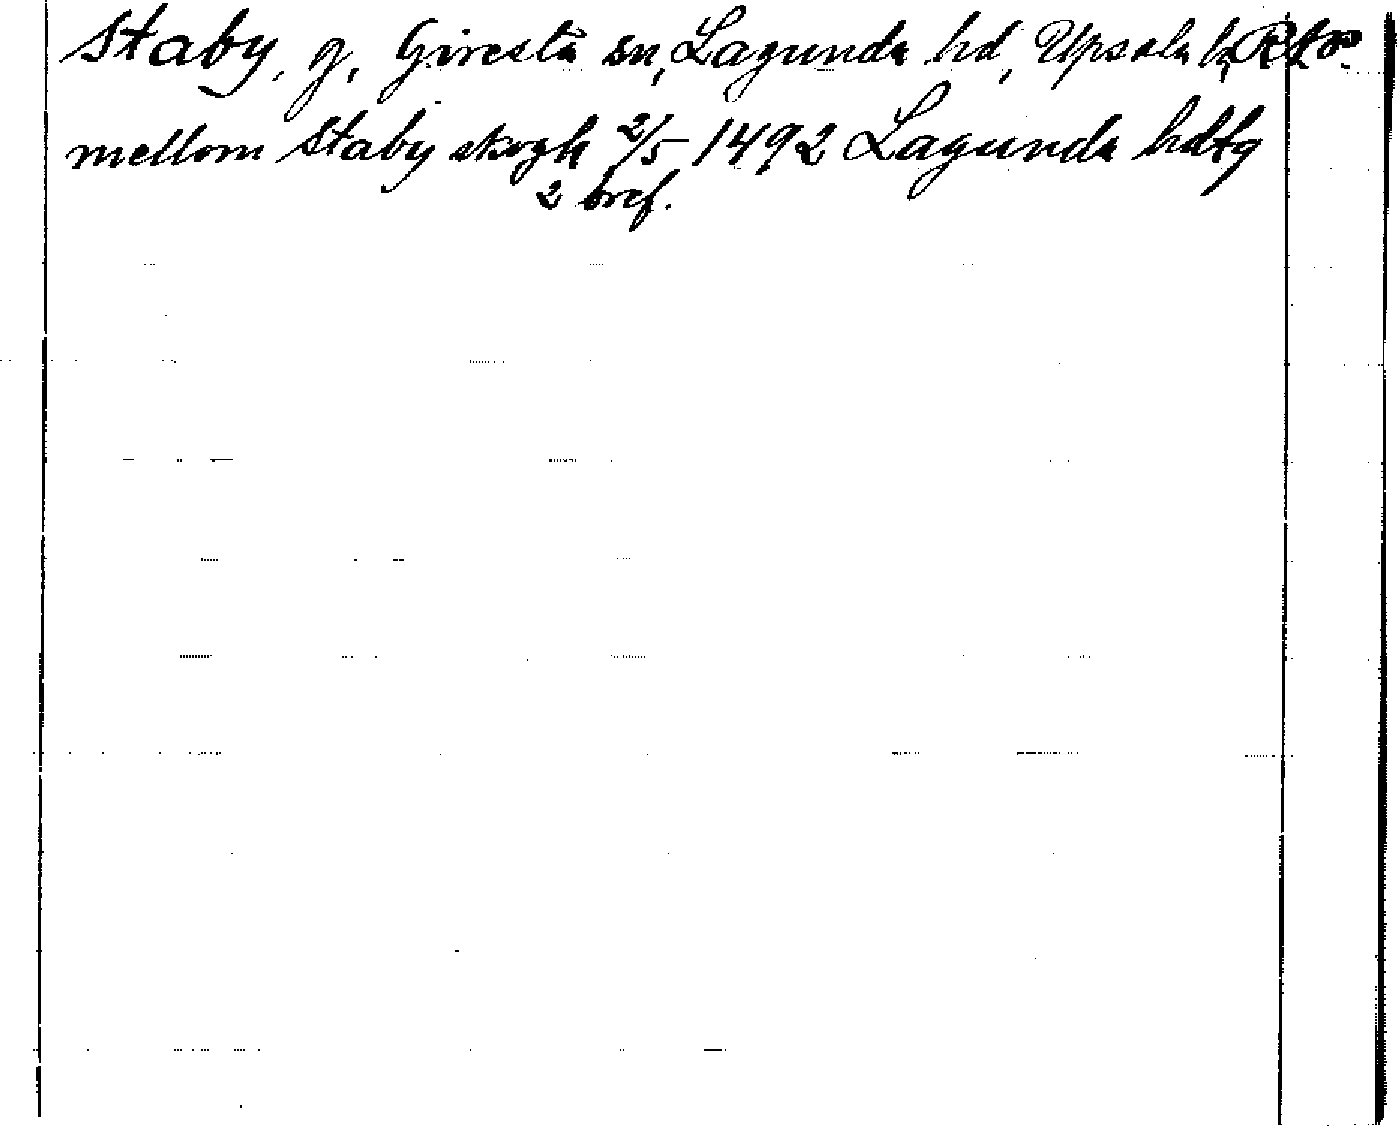 Staby, g, Giresta sn, Lagunda hd, Upsala l, RAp.
mellom Staby skogh 2/5 1492 Lagunda hdtg
2 bref.